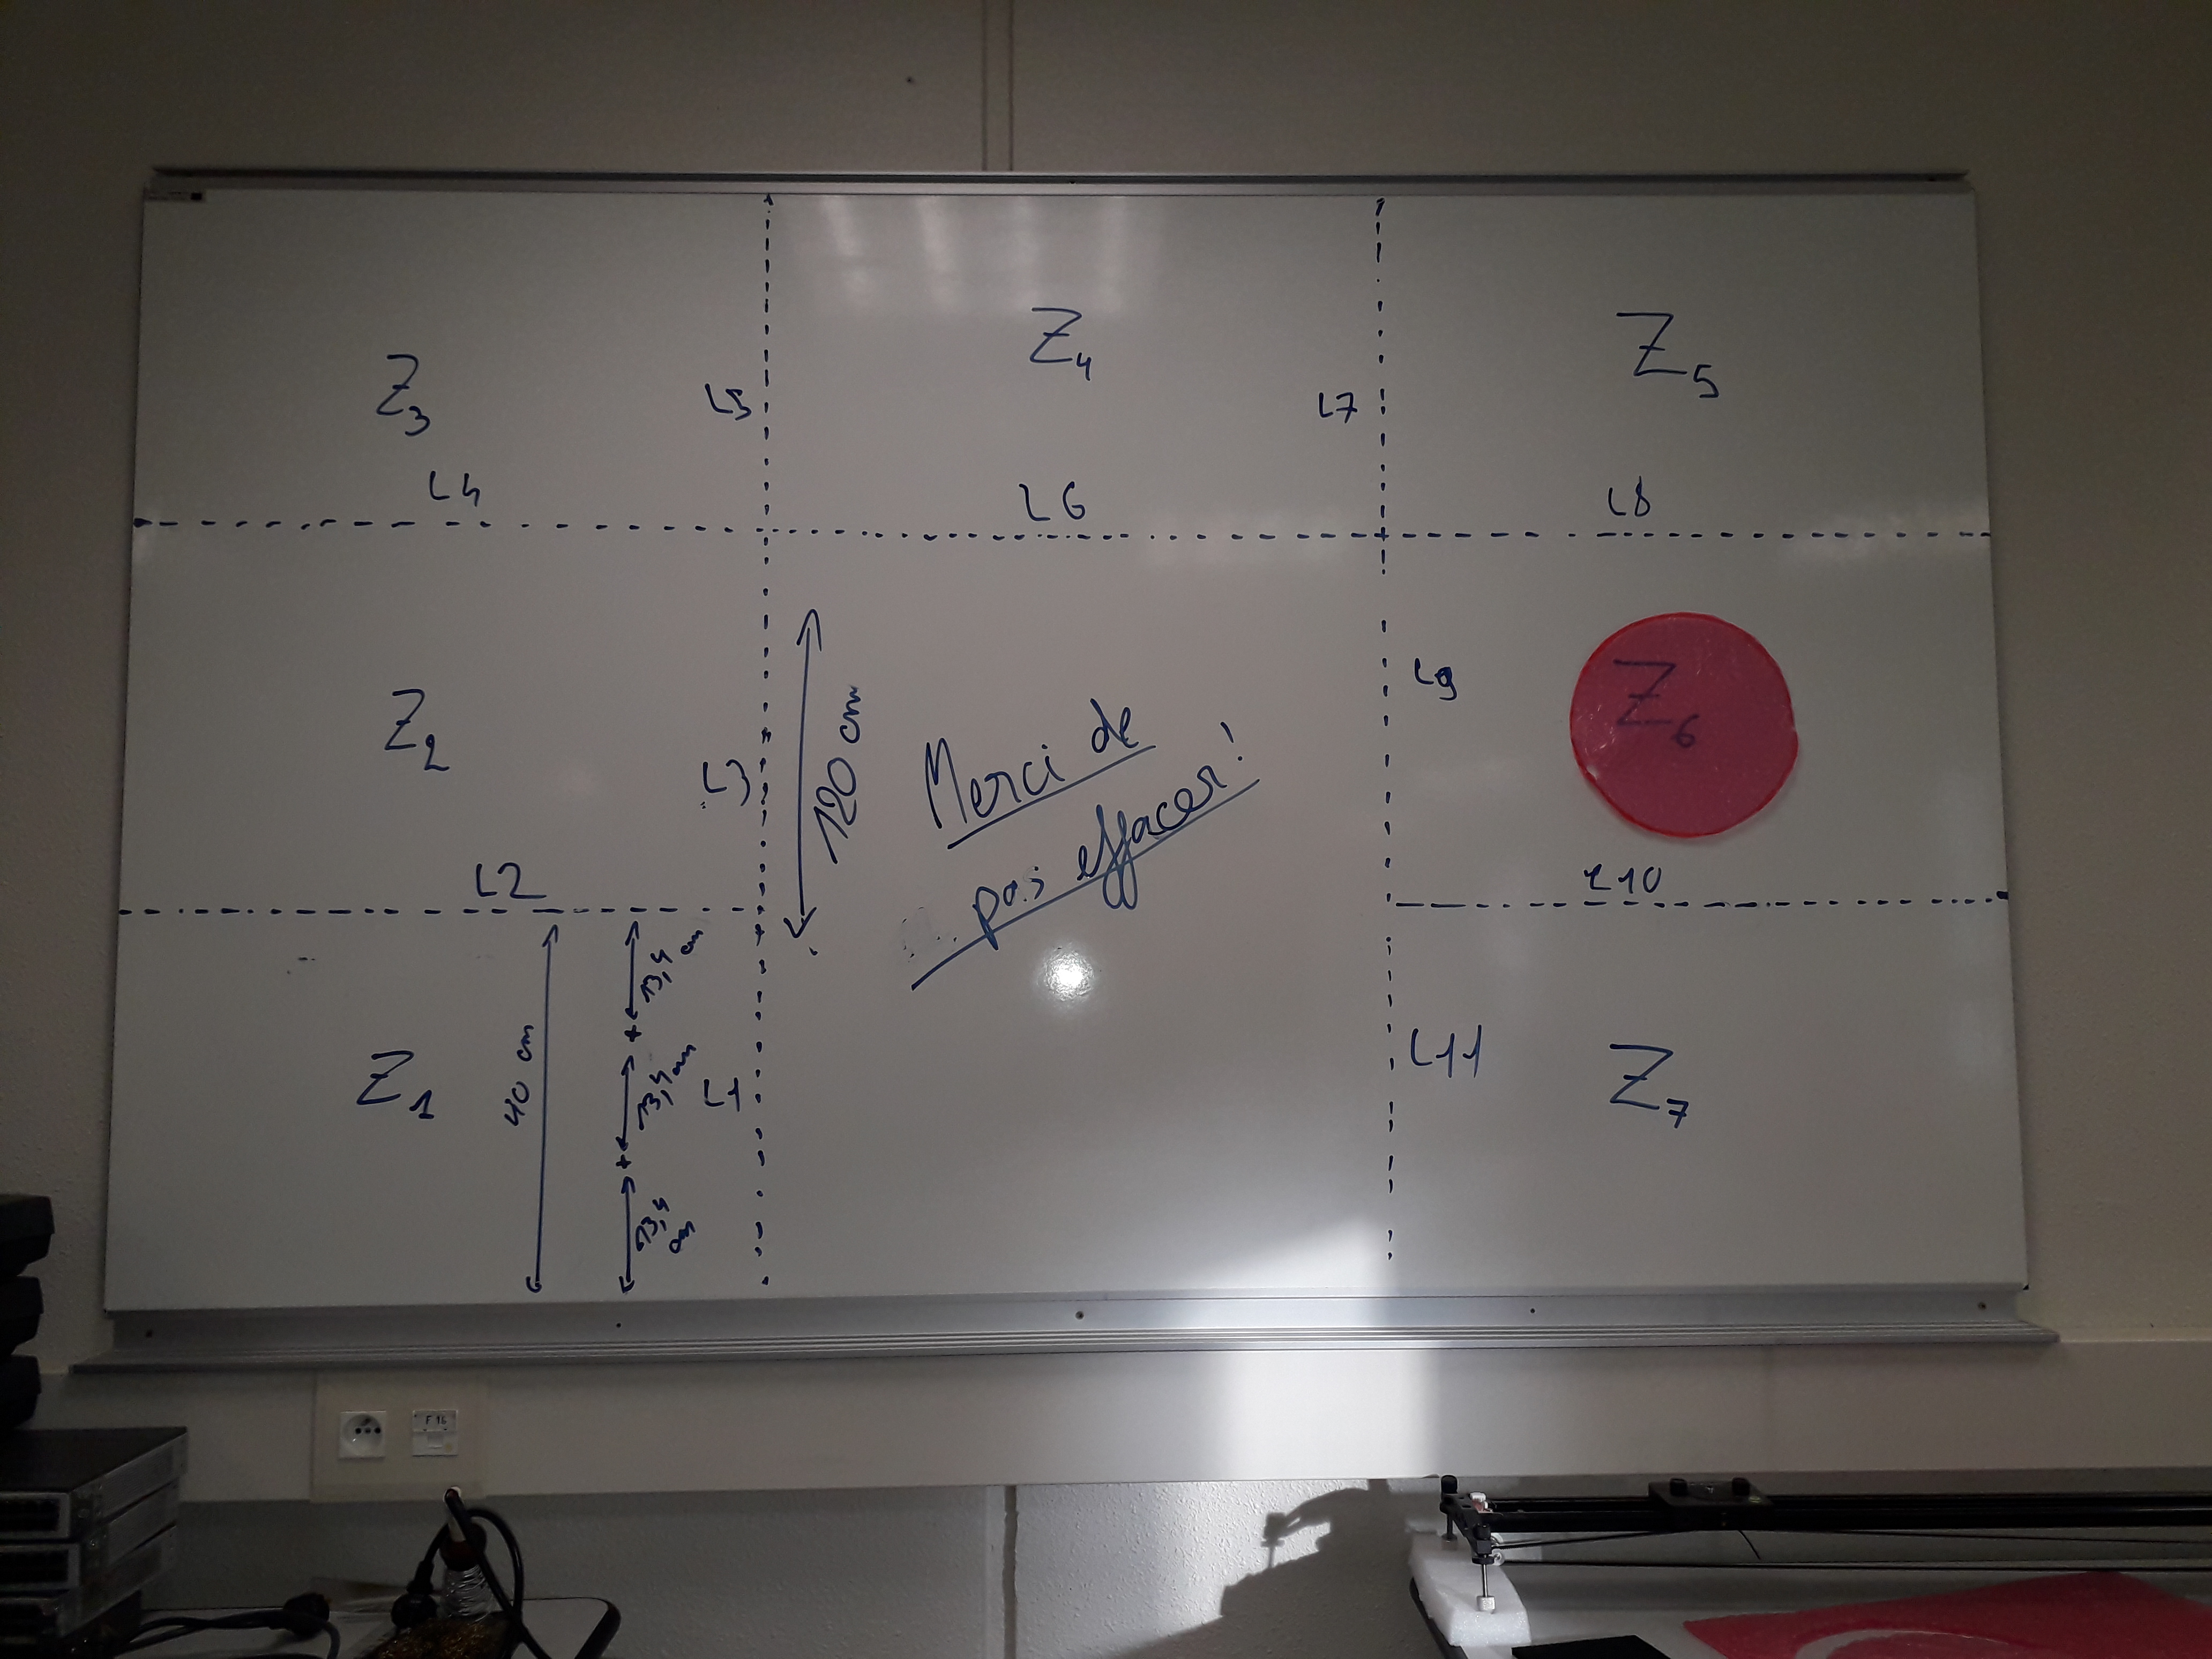 Z3
L5
Z4
L7
Z5
L4
L6
L8
Z2
L3
120 cm
Merci de
pas effacer!
L9
Z6
L2
L10
Z1
40 cm
13,4 cm
13,4 cm
13,4 cm
L1
L11
Z7
F16